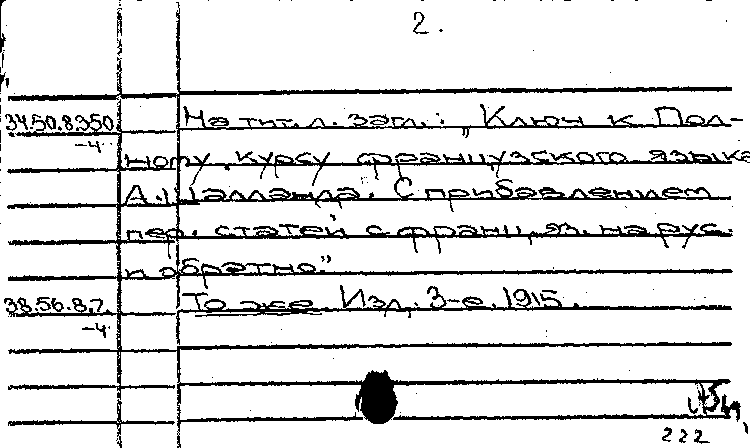 2.
34.50.8.350 На тит. л. загл.: „Ключ к Пол-
-4 ному курсу французского языка
А. Шалланда. С прибавлением
пер. статей с франц. яз. на рус.
и обратно."
38.56.8.7. То же Изд. 3-е. 1915.
-4
222